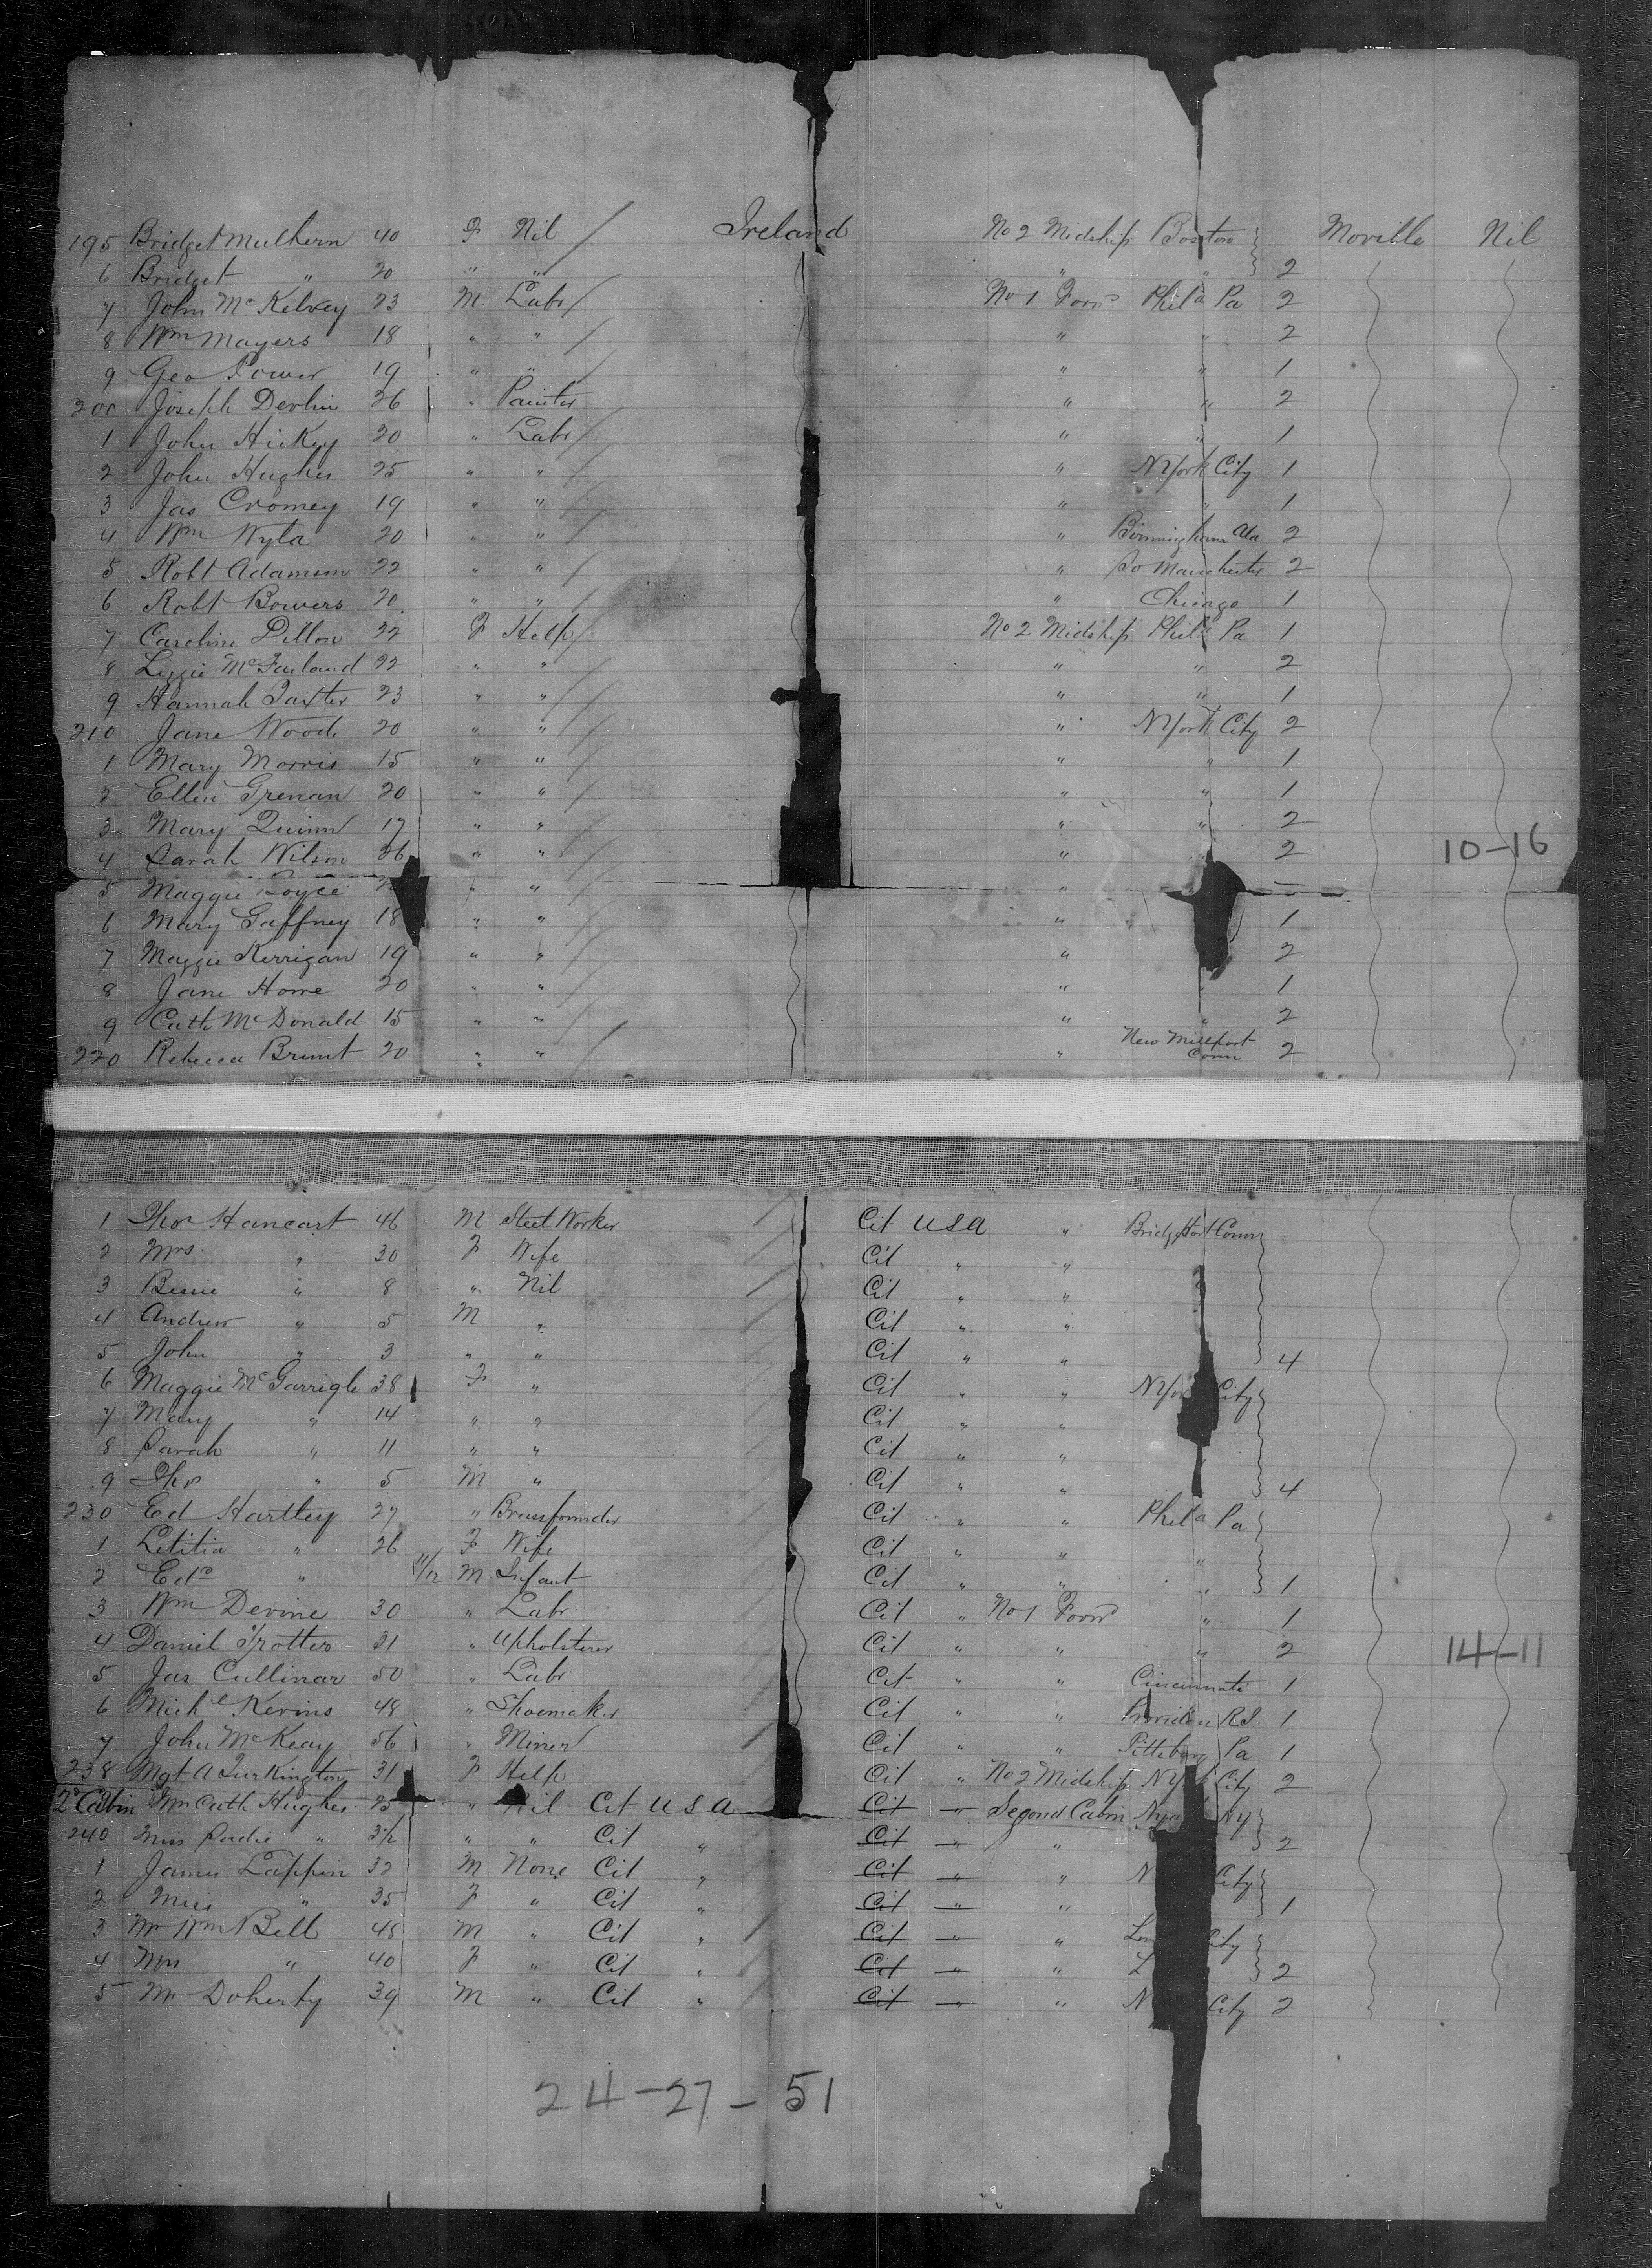 195 Bridget Mulhern 40 F Nil / Ireland No 2 Midship Boston } Moville Nil
6 Bridget " 20 " " / " " } 2
7 John McKelvey 23 M Labr / No 1 Forwd Phila Pa 2
8 Wm Mayers 18 " " / " " 2
9 Geo Power 19 " " / " " 1
200 Joseph Devlin 26 " Painter " " 2
1 John Hickey 20 " Labr / " " 1
2 John Hughes 25 " " / " N York City 1
3 Jas Cromey 19 " " / " " 1
4 Wm Wyla 20 " " / " Birmingham Ala 2
5 Robt Adamson 22 " " / " So Manchester 2
6 Robt Bowers 20 " " / " Chicago 1
7 Caroline Dillon 22 F Help / No 2 Midship Phila Pa 1
8 Lizzie McFarland 22 " " / " " 2
9 Hannah 23 " " / " " 1
210 Jane Woods 20 " " / " N York City 2
1 Mary Morris 15 " " / " " 1
2 Ellen Grenan 20 " " / " " 1
3 Mary Quinn 17 " " / " " 2
4 Sarah Wilson 26 " " / " 2 10-16
5 Maggie Boyce " " / "
6 Mary Gaffney 18 " " / " 1
7 Maggie Kerrigan 19 " " / " 2
8 Jane Howe 20 " " / " " 1
9 Cath McDonald 15 " " / " " 2
220 Rebecca Brunt 20 " " / " New Millport Conn 2
1 Thos Hancart 46 M Steel Worker / Cit USA " Bridgeport Conn }
2 Mrs " 30 F Wife / Cit " "
3 Bessie " 8 " Nil / Cit " "
4 Andrew " 5 M " / Cit " "
5 John " 3 " " / Cit " " } 4
6 Maggie McGarrigle 38 F " / Cit " " N York City }
7 Mary " 14 " " / Cit " "
8 Sarah " 11 " " / Cit " "
9 Thos " 5 M " / Cit " " } 4
230 Ed Hartley 27 " Brassfounder / Cit " " Phila Pa }
1 Letitia " 26 F Wife / Cit " " "
2 Edd " 11/12 M Infant / Cit " " " } 1
3 Wm Devine 30 " Labr / Cit " No 1 Forwd " 1
4 Daniel Trotter 31 " Upholsterer / Cit " " " 2 14-11
5 Jas Cullinan 50 " Labr / Cit " " Cincinnati 1
6 Michl Kevins 48 " Shoemaker / Cit " " Providence RI 1
7 John McKeay 56 " Miner / Cit " " Pittsburg Pa 1
238 Mgt A Turkington 31 F Help / Cit " No 2 Midship N Y City 2
2d Cabin Mrs Cath Hughes 25 " Nil Cit USA Cit " Second Cabin Nya NY }
240 Miss Sadie " 3½ " " Cit " / Cit " " } 2
1 James Lappin 32 M None Cit " / Cit " " N City }
2 Miss " 35 F " Cit " / Cit " " } 1
3 Mr Wm Bell 45 M " Cit " / Cit " " City }
4 Mrs " 40 F " Cit " / Cit " " L } 2
5 Mr Doherty 39 M " Cit " / Cit " " N City 2
24-27-51